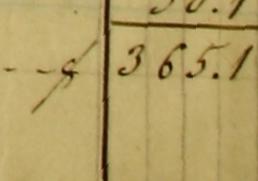 --$ 365.1